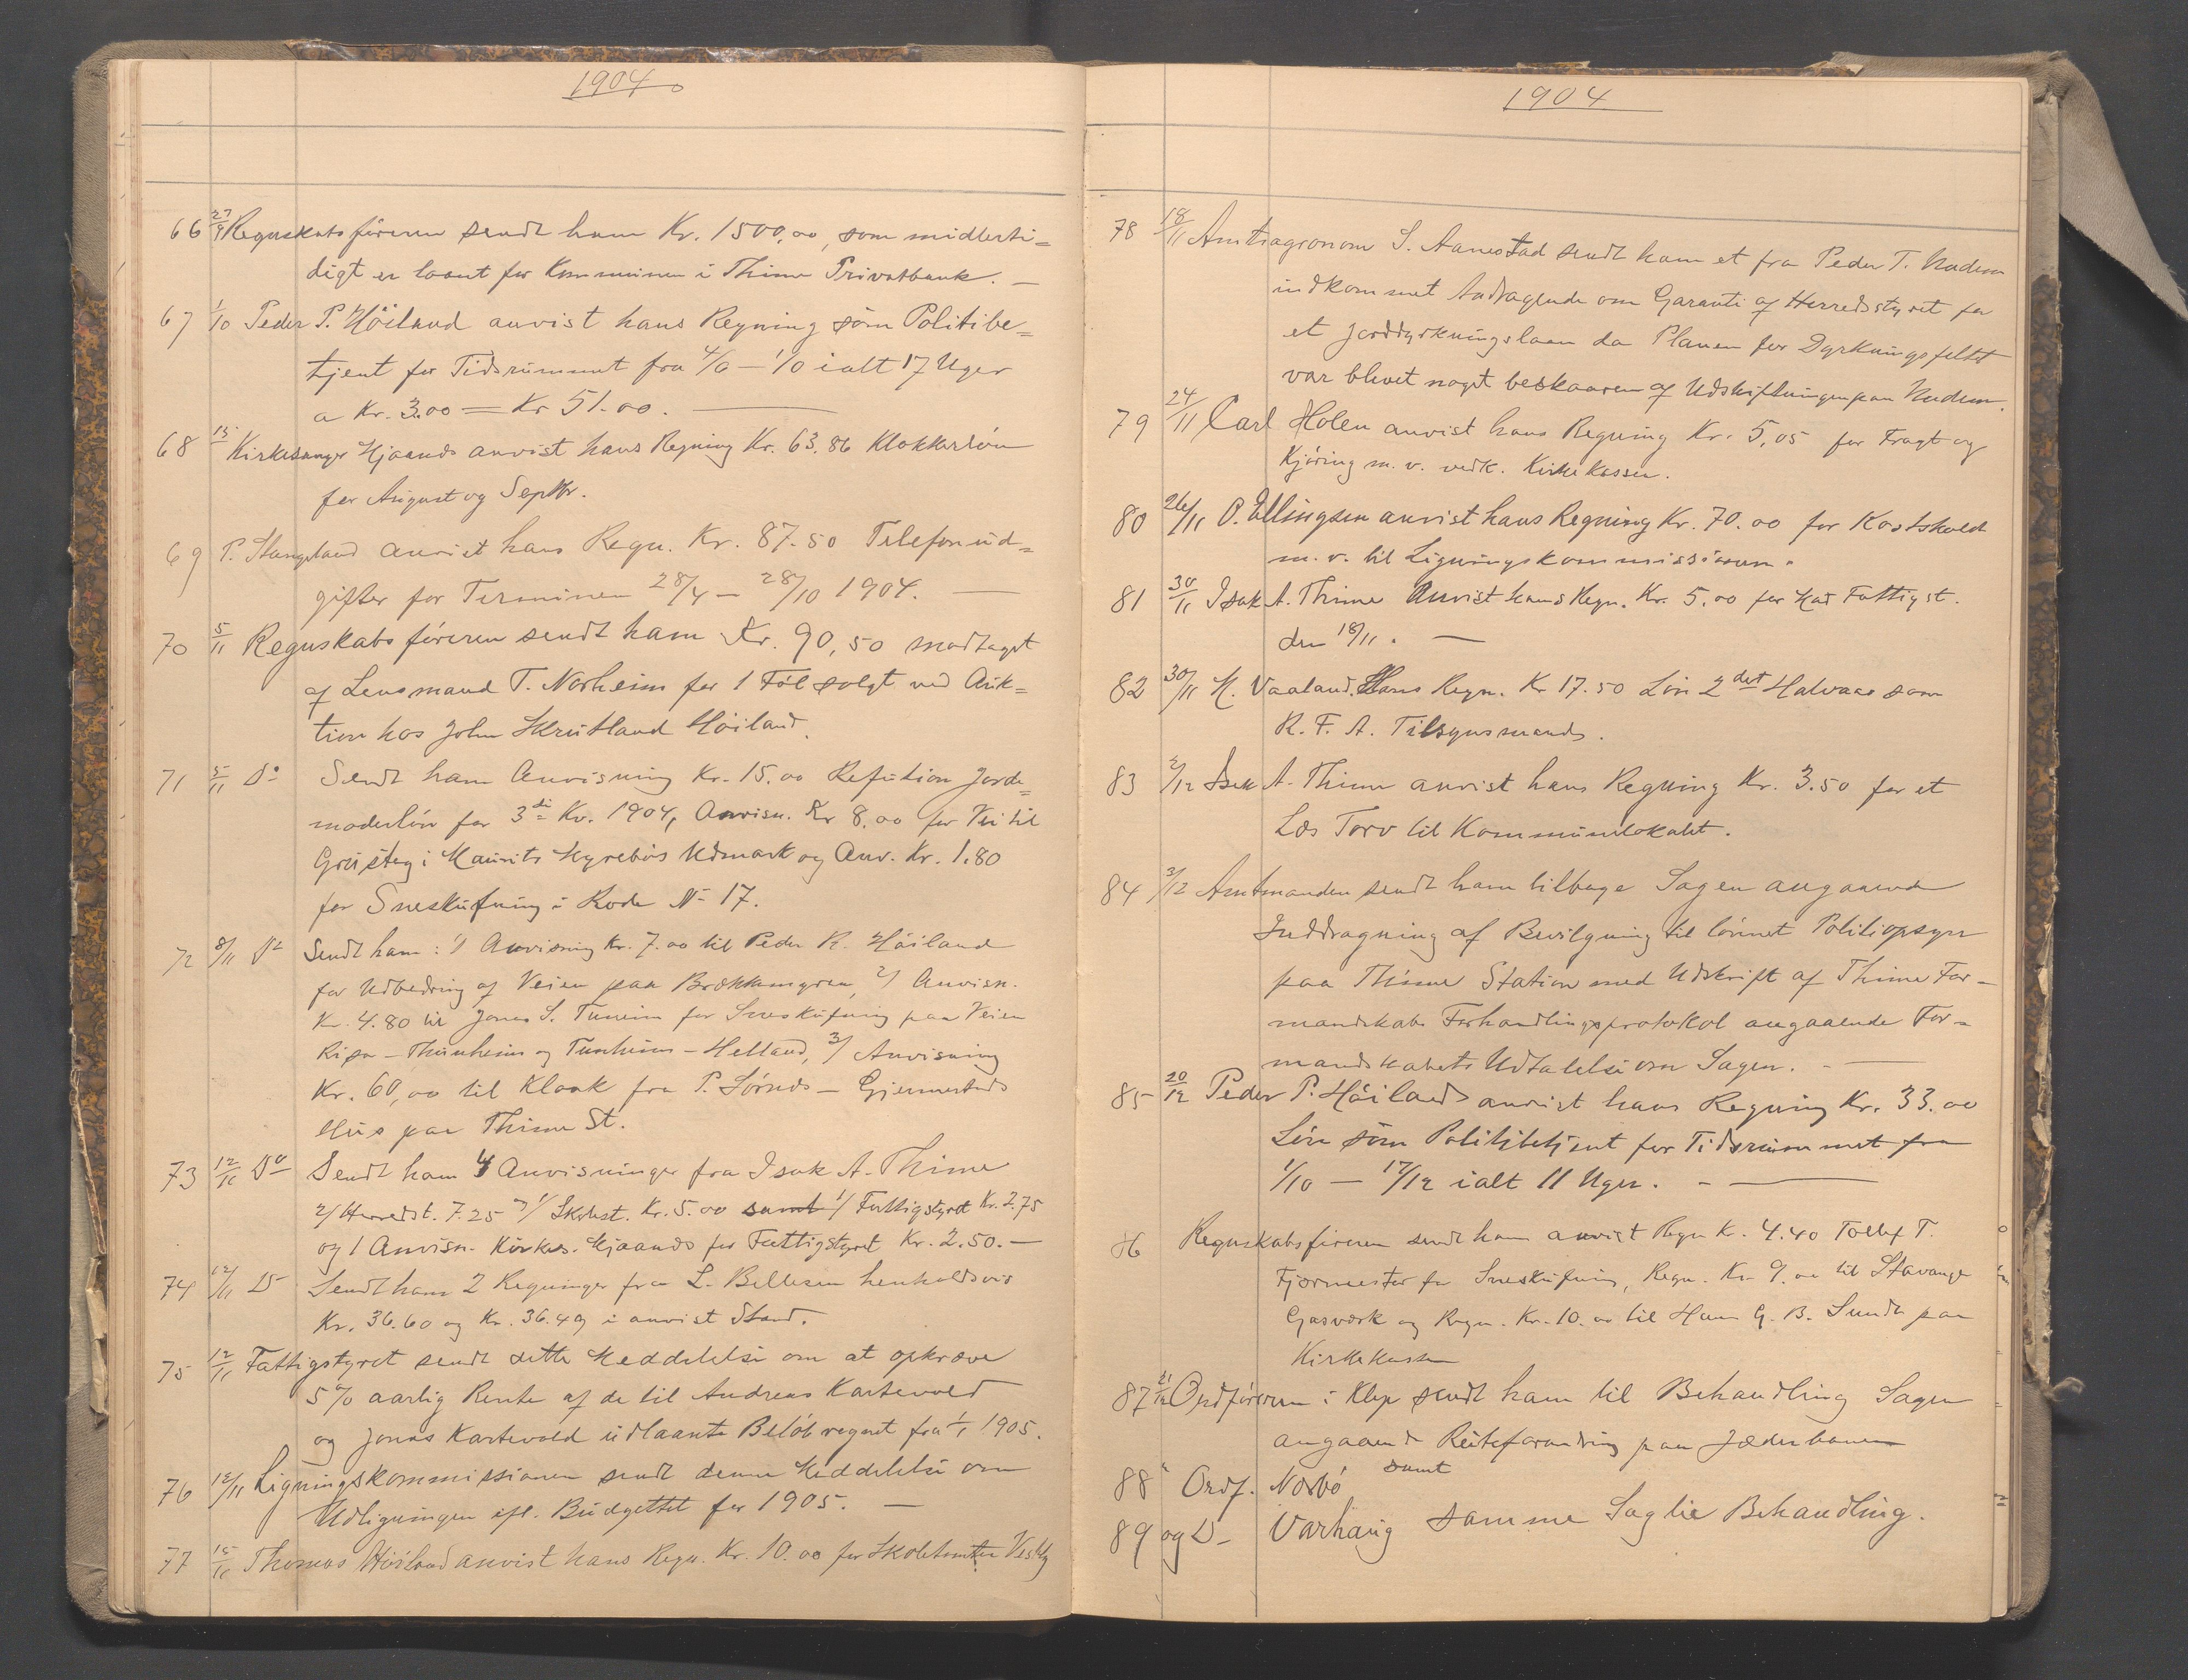 1904
66 27/9 Regnskabsføreren sendt ham Kr. 1500,00, som midlerti=
digt er laant for Kommunen i Thime Privatbank. —
67 1/10 Peder P. Höiland anvist hans Regning som Politibe=
tjent for Tidsrummet fra 4/6 — 1/10 ialt 17 Uger
a Kr. 3.00 = Kr 51.00. —
68 15/ Kirkesanger Hjaands anvist hans Regning Kr. 63.86 Klokkerløn
for August og Septbr.
69 P. Stangeland anvist hans Regn. Kr. 87.50 Telefonud=
gifter for Terminen 28/4 — 28/10 1904. —
70 5/11 Regnskabsføreren sendt ham Kr. 90,50 modtaget
af Lensmand T. Norheim for 1 Föl solgt ved Auk=
tion hos John Skrutland Höiland.
71 5/11 Do Sendt ham Anvisning Kr. 15.00 Refusion Jorde=
moderløn for 3die Kv. 1904, Anvisn. Kr 8.00 for Vei til
Grustag i Maurits Myrebös Udmark og Anv. Kr. 1.80
for Sneskufning i Rode N- 17.
72 8/11 Do Sendt ham: 1/ Anvisning Kr. 7.00 til Peder R. Höiland
for Udbedring af Veien paa Brækkemyren, 2/ Anvisn.
Kr. 4.80 til Jonas S. Tunheim for Sneskufning paa Veien
Risa — Thunheim og Tunheim — Helland, 3/ Anvisning
Kr. 60,00 til Kloak fra P. Sörnes — Gjermestads
Hus paa Thime St.
73 12/11 Do Sendt ham 4 Anvisninger fra Isak A. Thime
2/ Herredst. 7.25 1/ Skolest. Kr. 5.00 samt 1/ Fattigstyret Kr. 2.75
og 1 Anvisn. Kirkes. Hjaands for Fattigstyret Kr. 2.50. —
74 12/11 Do Sendt ham 2 Regninger fra L. Bellesen henholdsvis
Kr. 36.60 og Kr. 36.49 i anvist Stand.
75 12/11 Fattigstyret sendt dette Meddelelse om at opkræve
5% aarlig Rente af de til Andreas Kartevold
og Jonas Kartevold udlaante Beløb regnet fra 1/1 1905.
76 12/11 Ligningskommissionen sendt denne Meddelelse om
Udligningen efl. Budgettet for 1905. —
77 15/11 Thomas Höiland anvist hans Regn. Kr. 10.00 for Skoletomten Vestly
1904
78 18/11 Amtsagronom S. Aanestad sendt ham et fra Peder T. Undem
indkommet Andragende om Garanti af Herredsstyret for
et Jorddyrkningslaan da Planen for Dyrkningsfeltet
var blevet noget beskaaren af Udskiftningen paa Undem.
79 24/11 Carl Holen anvist hans Regning Kr. 5,05 for Fragt og
Kjøring m. v. vedk. Kirkekassen.
80 26/11 O. Ellingsen anvist hans Regning Kr. 70.00 for Kosthold
m. v. til Ligningskommissionen.
81 30/11 Isak A. Thime Anvist hans Regn. Kr. 5.00 for Mad Fattigst.
den 18/11. —
82 30/11 M. Vaaland. Hans Regn. Kr 17.50 Løn 2det Halvaar som
R. F. A. Tilsynsmand.
83 2/12 Isak A. Thime anvist hans Regning Kr. 3.50 for et
Læs Torv til Kommunelokalet.
84 3/12 Amtmanden sendt ham tilbage Sagen angaaende
Inddragning af Bevilgning til lønnet Politiopsyn
paa Thime Station med Udskrift af Thime For-
mandskabs Forhandlingsprotokol angaaende For-
mandskabets Udtalelse om Sagen. —
85 20/12 Peder P. Höiland anvist hans Regning Kr. 33.00
Løn som Politibetjent for Tidsrummet fra
1/10 — 17/12 ialt 11 Uger. —
86 Regnskabsføreren sendt ham anvist Regn K. 4.40 Tollef T.
Fjermestad for Sneskufning, Regn. Kr 9.00 til Stavanger
Gasværk og Regn. Kr. 10.00 til Hans G. B. Sundt paa
Kirkekassen
87 21/12 Ordføreren i Klep sendt ham til Behandling Sagen
angaaende Ruteforandring paa Jæderbanen
samt
88 " Ordf. Nærbö
89 og Do Varhaug samme Sag til Behandling.